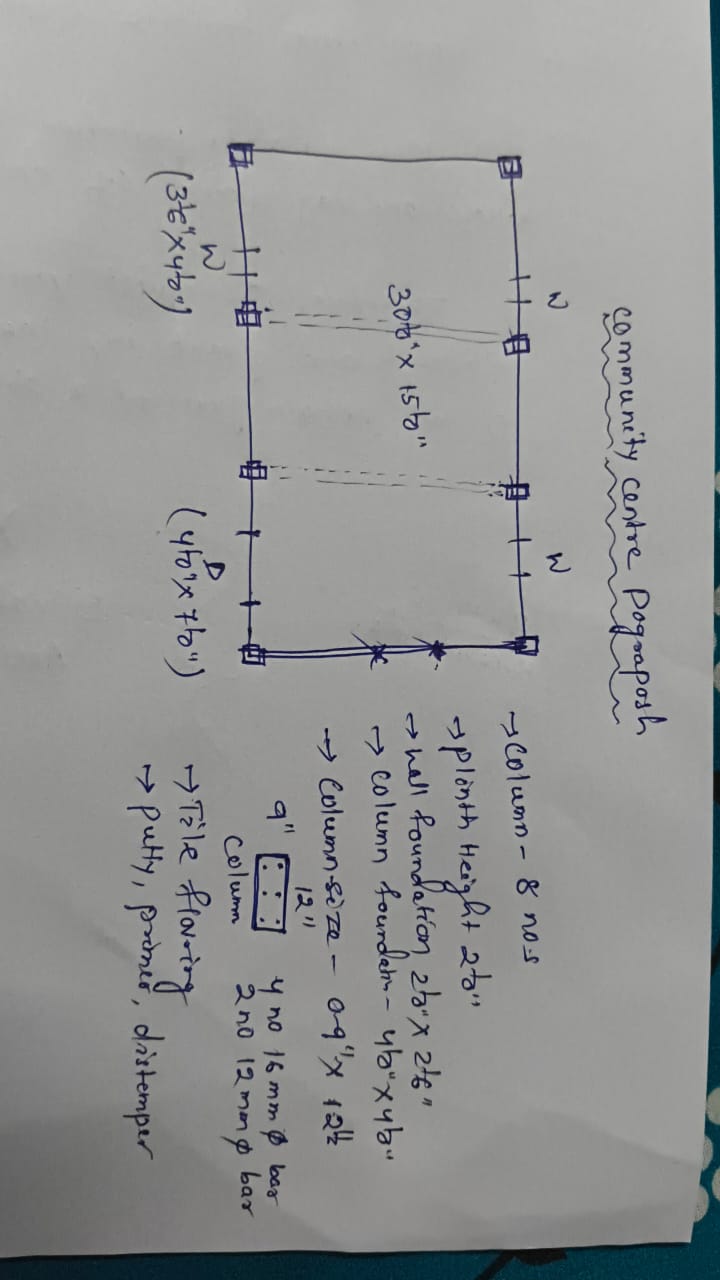 community centre Pograposh
W
W
30'0" x 15'0"
W
(3'6" x 4'0")
D
(4'0" x 7'0")
→ Column - 8 nos
→ plinth Height 2'0"
→ wall foundation 2'6" x 2'6"
→ column foundatn - 4'0" x 4'0"
→ Column size - 0-9" x 12"
9"
12"
column
4 no 16 mm ø bar
2 no 12 mm ø bar
→ Tile flooring
→ putty, primer, distemper